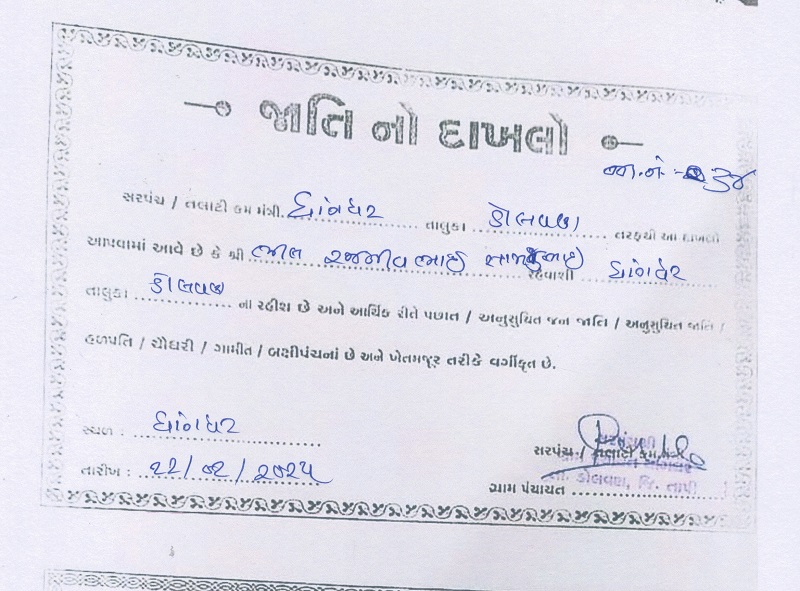 જાતિ નો દાખલો
જા.નં.- ૩૪
સરપંચ / તલાટી કમ મંત્રી ધાંગધર તાલુકા ડોલવણ તરફથી આ દાખલો
આપવામાં આવે છે કે શ્રી ભાઈ રહેવાશી ધાંગધર
તાલુકા ડોલવણ ના રહીશ છે અને આર્થિક રીતે પછાત / અનુસુચિત જન જાતિ / અનુસુચિત જાતિ /
હળપતિ / ચૌધરી / ગામીત / બક્ષીપંચનાં છે અને ખેતમજૂર તરીકે વર્ગીકૃત છે.
સ્થળ : ધાંગધર
તારીખ : ૨૨/૦૨/૨૦૨૫
સરપંચ / તલાટી કમ મંત્રી
સરપંચશ્રી
તા. ડોલવણ, જિ. તાપી
ગ્રામ પંચાયત